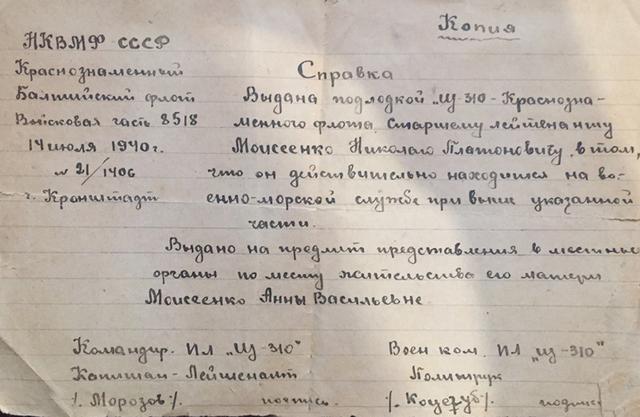 Копия
НКВМФ СССР
Краснознаменный
Балтийский флот
Войсковая часть 8518
14 июля 1940 г.
№ 21/1406
г. Кронштадт
Справка
Выдана подлодкой „Щ-310-Краснозна-
менного флота, Старшему лейтенанту
Моисеенко Николаю Платоновичу, в том,
что он действительно находится на во-
енно-морской службе при выше указанной
части.
Выдано на предмет представления в местные
органы по месту жительства его матери
Моисеенко Анны Васильевне
Командир. ИЛ „Щ-310"
Капитан-Лейтенант
/. Морозов /. подпись
Воен ком. ИЛ „Щ-310"
Политрук
/. /. подпись